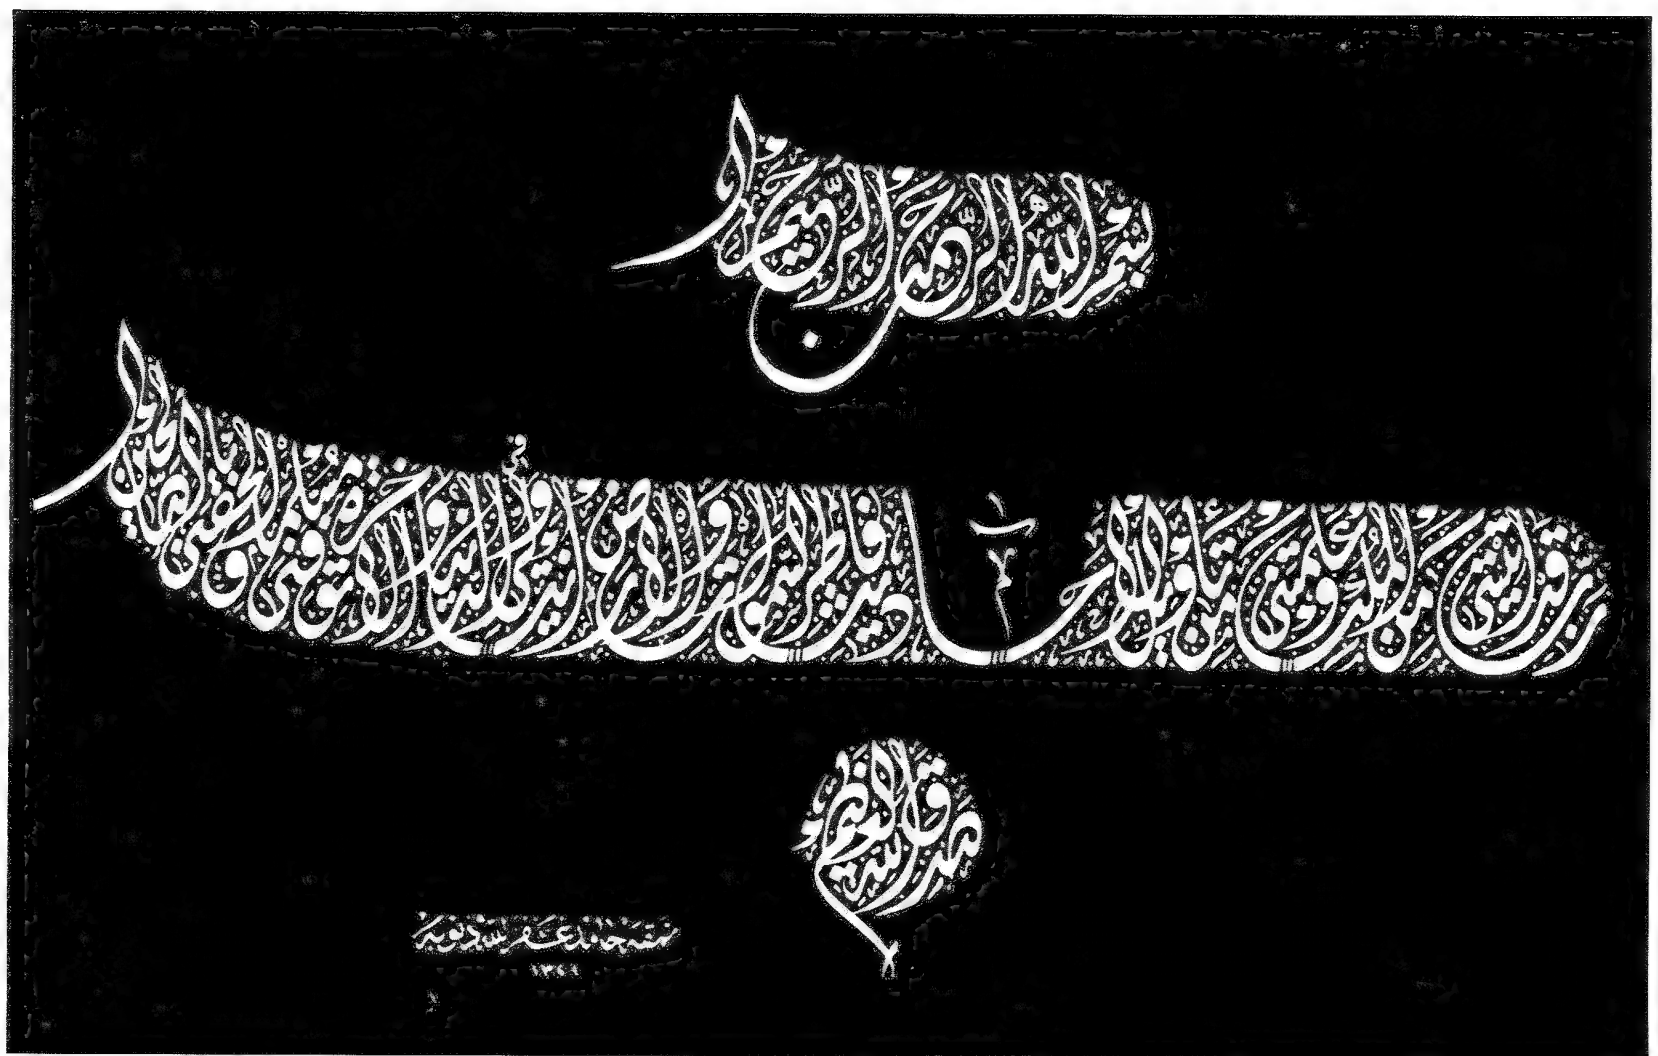 بسم الله الرحمن الرحيم
رب قد آتيتني من الملك وعلمتني من تأويل الأحاديث فاطر السموات والأرض أنت وليي في الدنيا والآخرة توفني مسلما وألحقني بالصالحين
صدق الله العظيم
نمقه حامد غفر ذنوبه